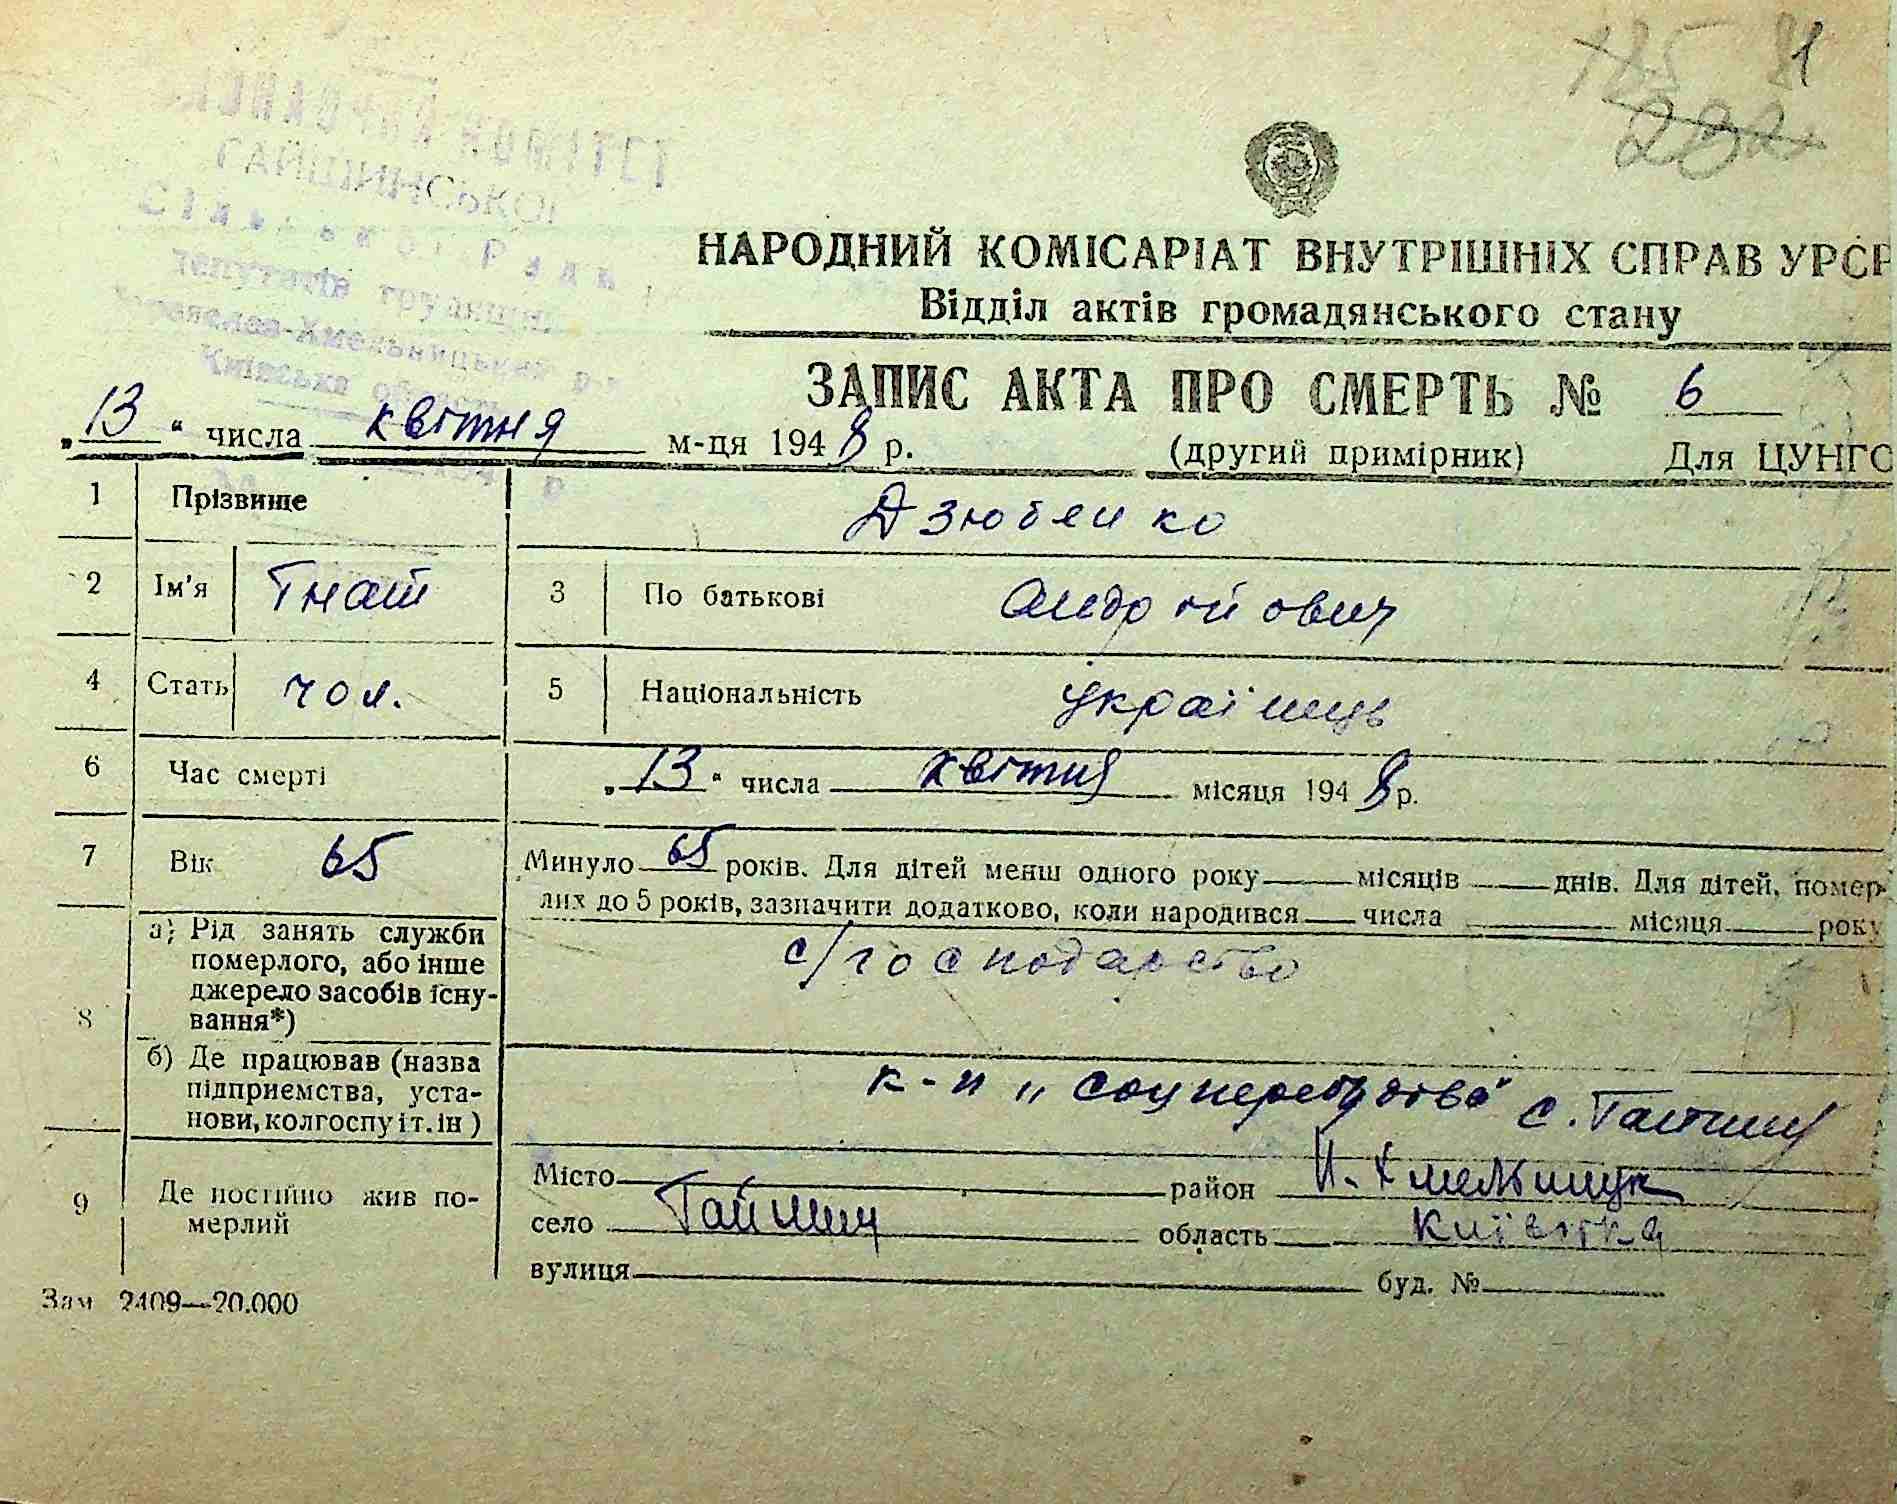 125 81
232
ГАЙШИНСЬКОЇ
НАРОДНИЙ КОМІСАРІАТ ВНУТРІШНІХ СПРАВ УРСР
Відділ актів громадянського стану
ЗАПИС АКТА ПРО СМЕРТЬ № 6
„13“ числа квітня м-ця 1948 р. (другий примірник) Для ЦУНГО
1 Прізвище Дзюбенко
2 Ім'я Гнат 3 По батькові Андрійович
4 Стать чол. 5 Національність українць
6 Час смерті „13“ числа квітня місяця 1948 р.
7 Вік 65 Минуло 65 років. Для дітей менш одного року місяців днів. Для дітей, помер-
лих до 5 років, зазначити додатково, коли народився числа місяця року
8 а) Рід занять служби
померлого, або інше
джерело засобів існу-
вання*)
с/господарство
б) Де працював (назва
підприємства, уста-
нови, колгоспу і т. ін)
к-п „Соцперебудова" с. Гайшин
9 Де постійно жив по-
мерлий
Місто район П. Хмельницьк
село Гайшин область Київська
вулиця буд. №
Зам 2409—20.000